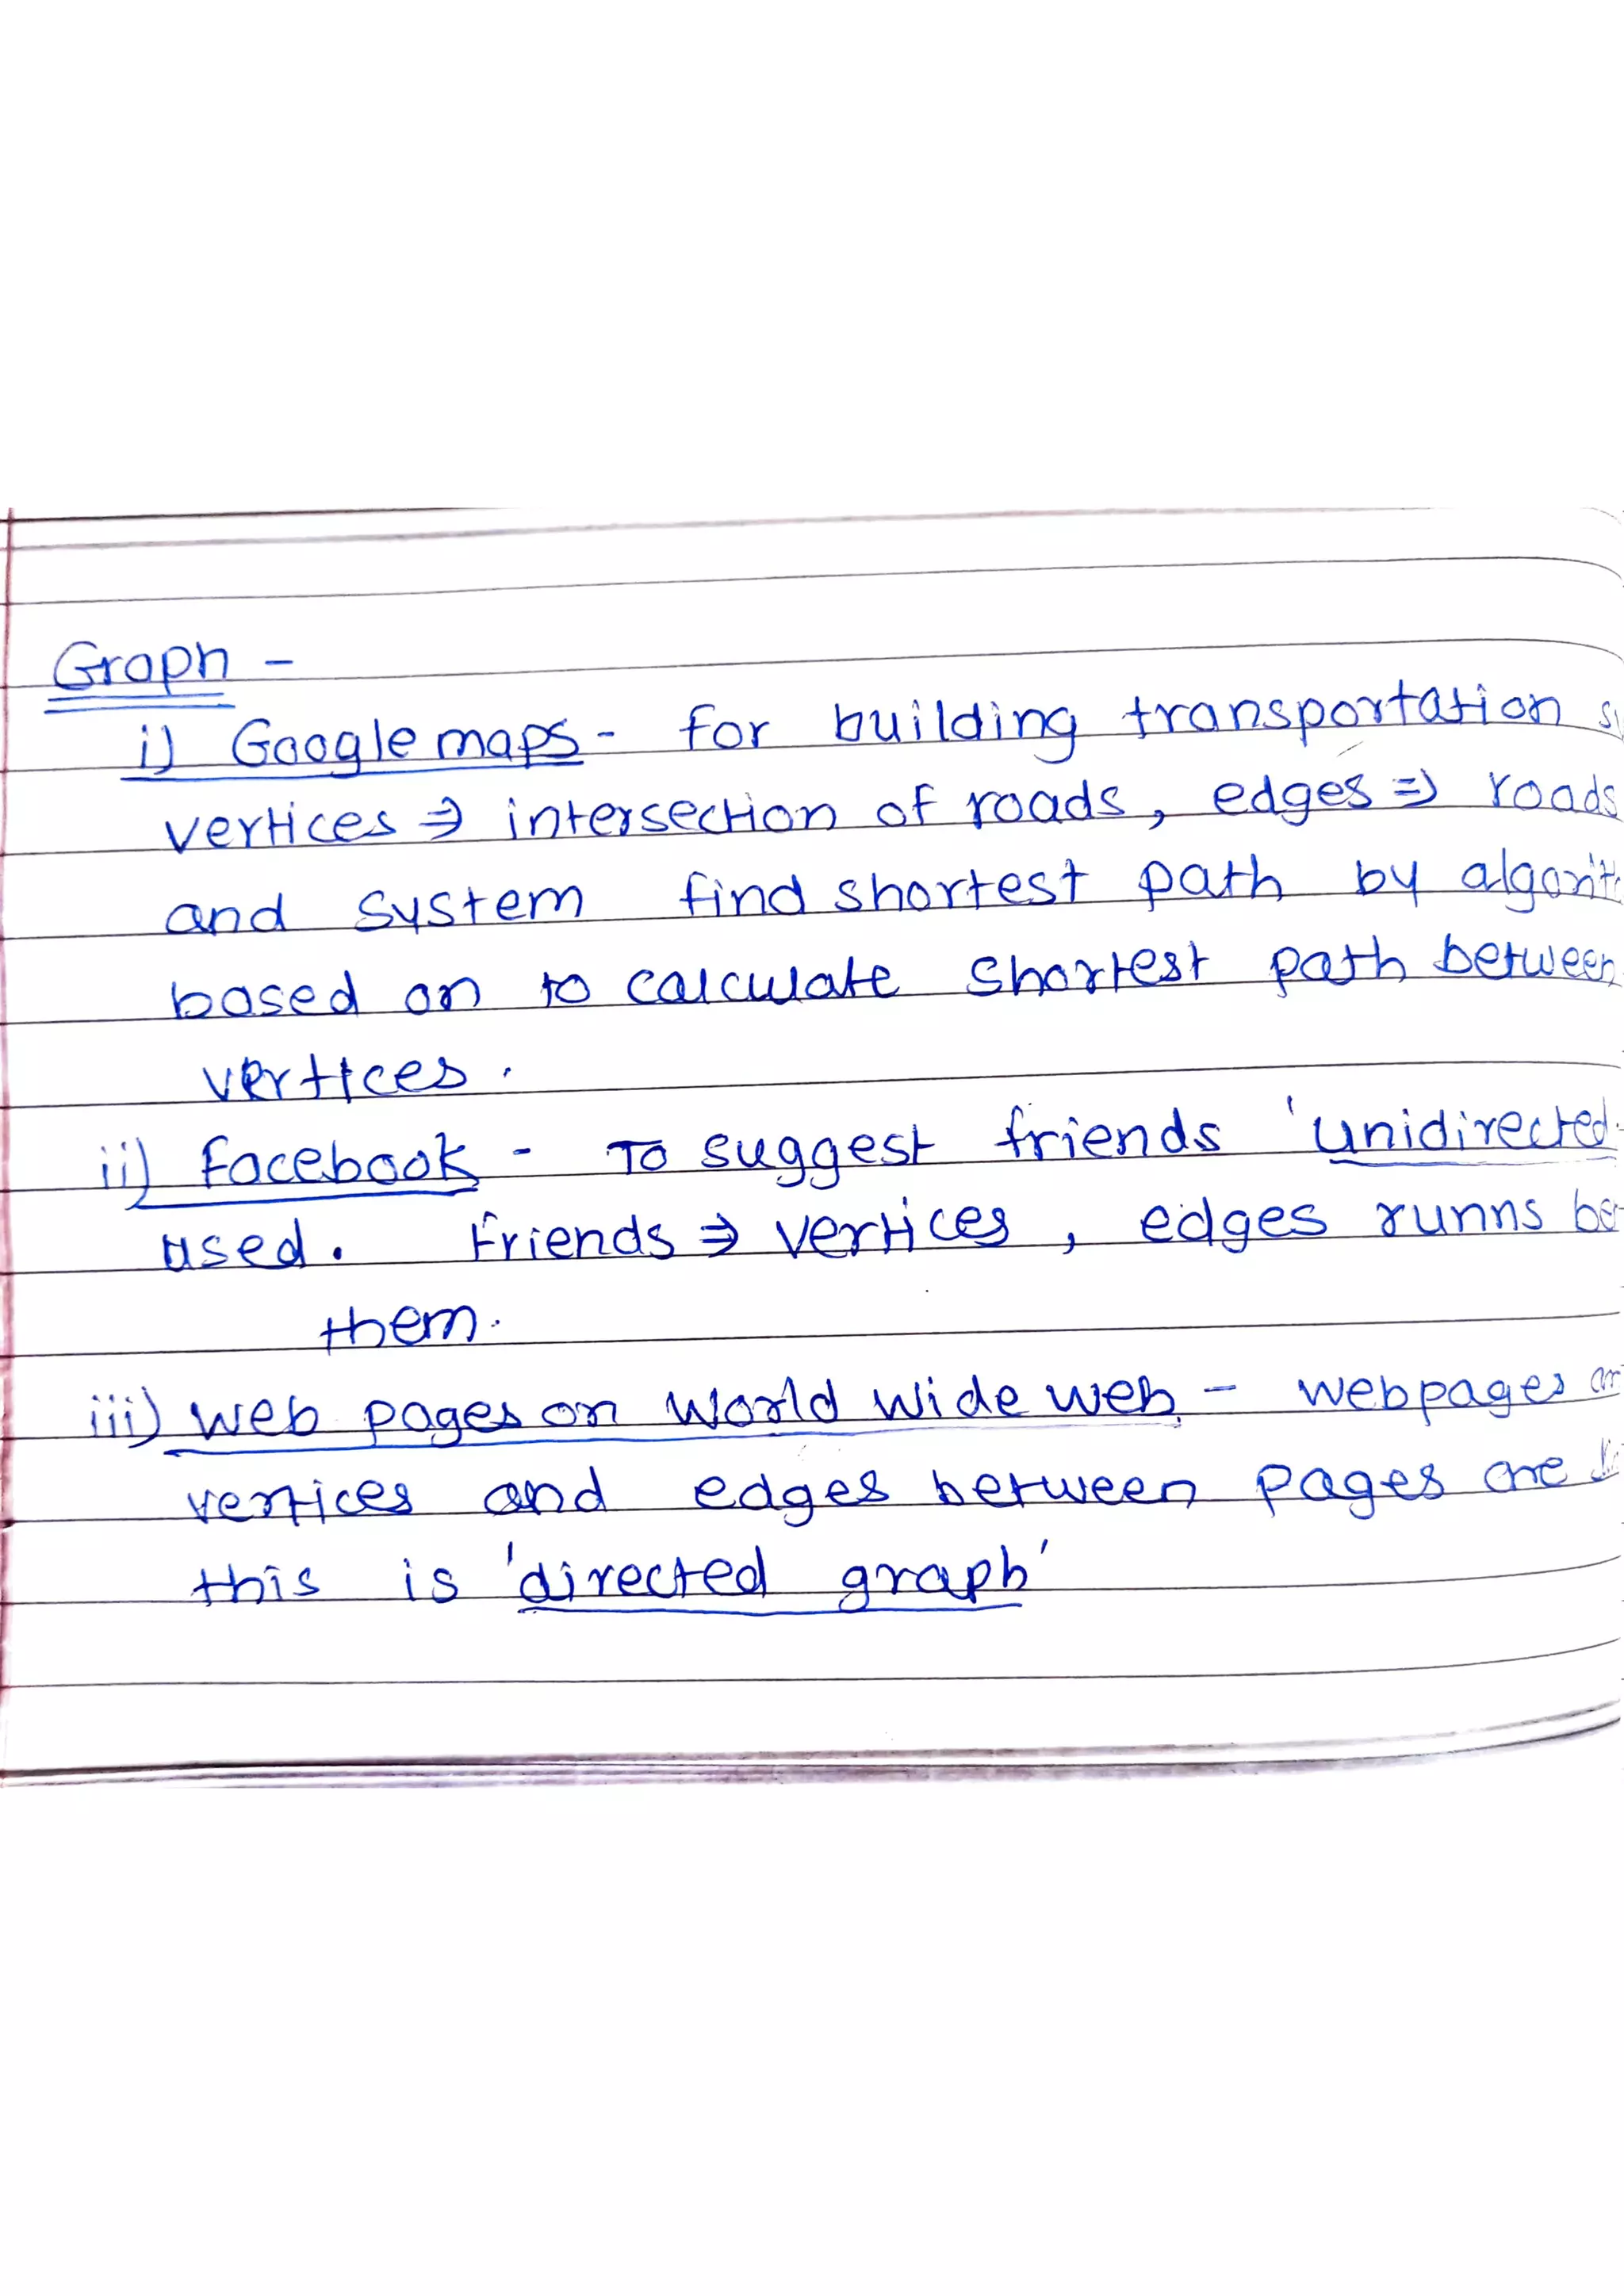 Graph -
i) Google maps - for building transportation
vertices ⇒ intersection of roads, edges ⇒ roads
and system find shortest path by
based on to calculate shortest path between
vertices.
ii) Facebook - To suggest friends 'unidirected
used. Friends ⇒ vertices, edges runns
them.
iii) web pages on World Wide Web - webpages
vertices and edges between pages are
this is 'directed graph'